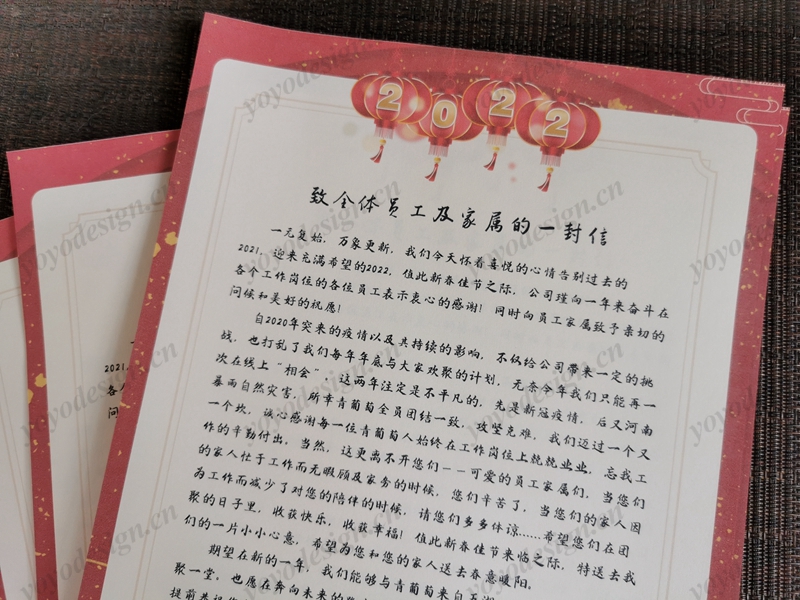 2022
致全体员工及家属的一封信
一元复始，万象更新，我们今天怀着喜悦的心情告别过去的
2021，迎来充满希望的2022，值此新春佳节之际，公司谨向一年来奋斗在
各个工作岗位的各位员工表示衷心的感谢！同时向员工家属致予亲切的
问候和美好的祝愿！
自2020年突来的疫情以及其持续的影响，不仅给公司带来一定的挑
战，也打乱了我们每年年底与大家欢聚的计划，无奈今年我们只能再一
次在线上“相会”，这两年注定是不平凡的，先是新冠疫情，后又河南
暴雨自然灾害，所幸青葡萄全员团结一致，攻坚克难，我们迈过一个又
一个坎，诚心感谢每一位青葡萄人始终在工作岗位上兢兢业业，忘我工
作的辛勤付出，当然，这更离不开您们——可爱的员工家属们，当您们
的家人忙于工作而无暇顾及家务的时候，您们辛苦了，当您们的家人因
为工作而减少了对您的陪伴的时候，请您们多多体谅……希望您们在团
聚的日子里，收获快乐，收获幸福！值此新春佳节来临之际，特送去我
们的一片小小心意，希望为您和您的家人送去春意暖阳。
期望在新的一年，我们能够与青葡萄来自五湖
聚一堂，也愿在奔向未来的
提前恭祝
2021，
各个
问候
yoyodesign.cn
yoyodesign.cn
yoyodesign.cn
yoyodesign.cn
yoyodesign.cn
yoyodesign.cn
yoyodesign.cn
yoyodesign.cn
yoyodesign.cn